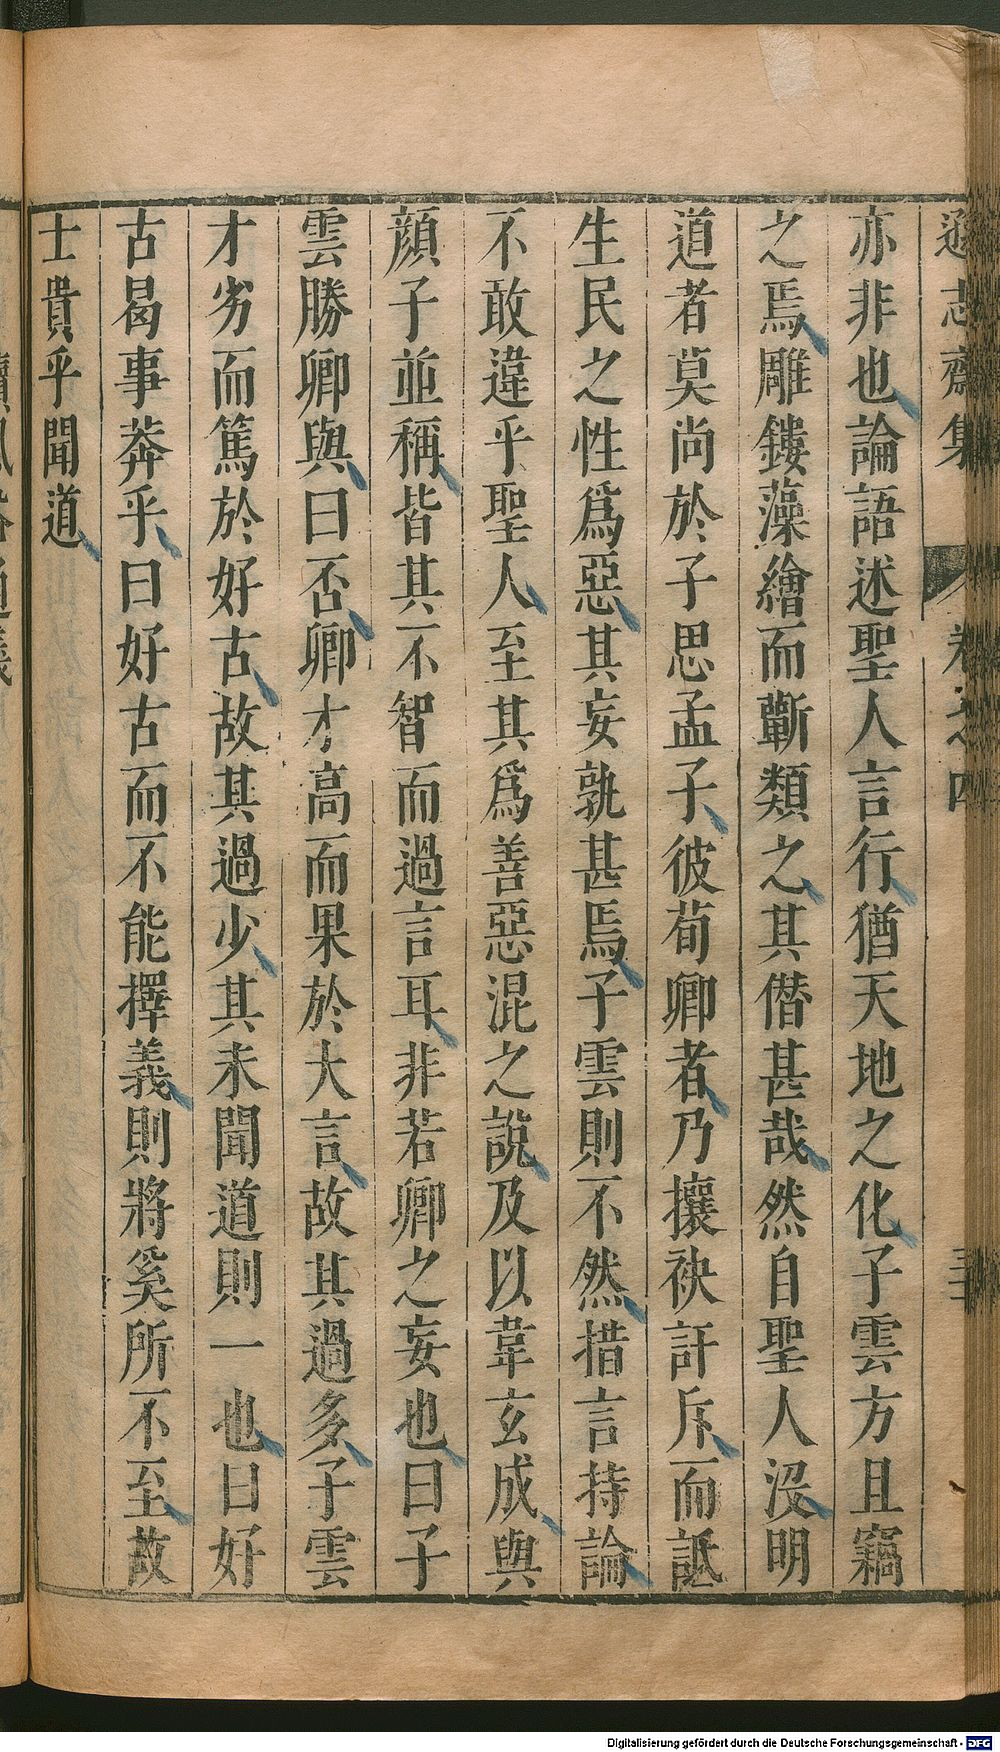 遜志齋集 卷之四
亦非也論語述聖人言行猶天地之化子雲方且竊
之焉雕鏤藻繪而蘄類之其僣甚哉然自聖人沒明
道者莫尚於子思孟子彼荀卿者乃攘袂訐斥而詆
生民之性爲惡其妄孰甚焉子雲則不然措言持論
不敢違乎聖人至其爲善惡混之說及以韋玄成與
顏子並稱皆其不智而過言耳非若卿之妄也曰子
雲勝卿與曰否卿才高而果於大言故其過多子雲
才劣而篤於好古故其過少其未聞道則一也曰好
古曷事莽乎曰好古而不能擇義則將奚所不至故
士貴乎聞道
Digitalisierung gefördert durch die Deutsche Forschungsgemeinschaft - DFG